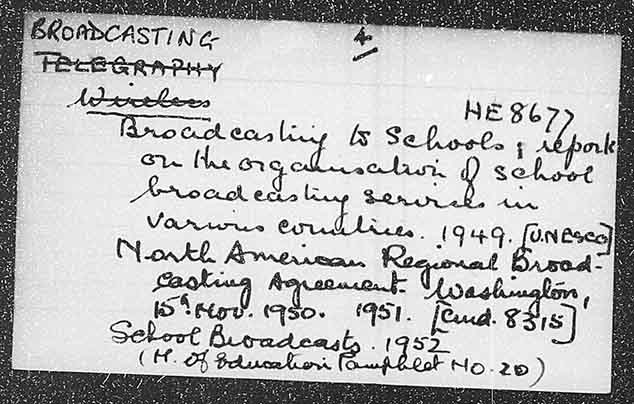 BROADCASTING 4
TELEGRAPHY
Wireless
HE8677
Broadcasting to Schools; report
on the organisation of school
broadcasting services in
various countries. 1949. [UNESCO]
North American Regional Broad-
casting Agreement. Washington,
15th Nov. 1950. 1951. [Cmd. 8315]
School Broadcasts. 1952
(M. of Education Pamphlet No. 20)